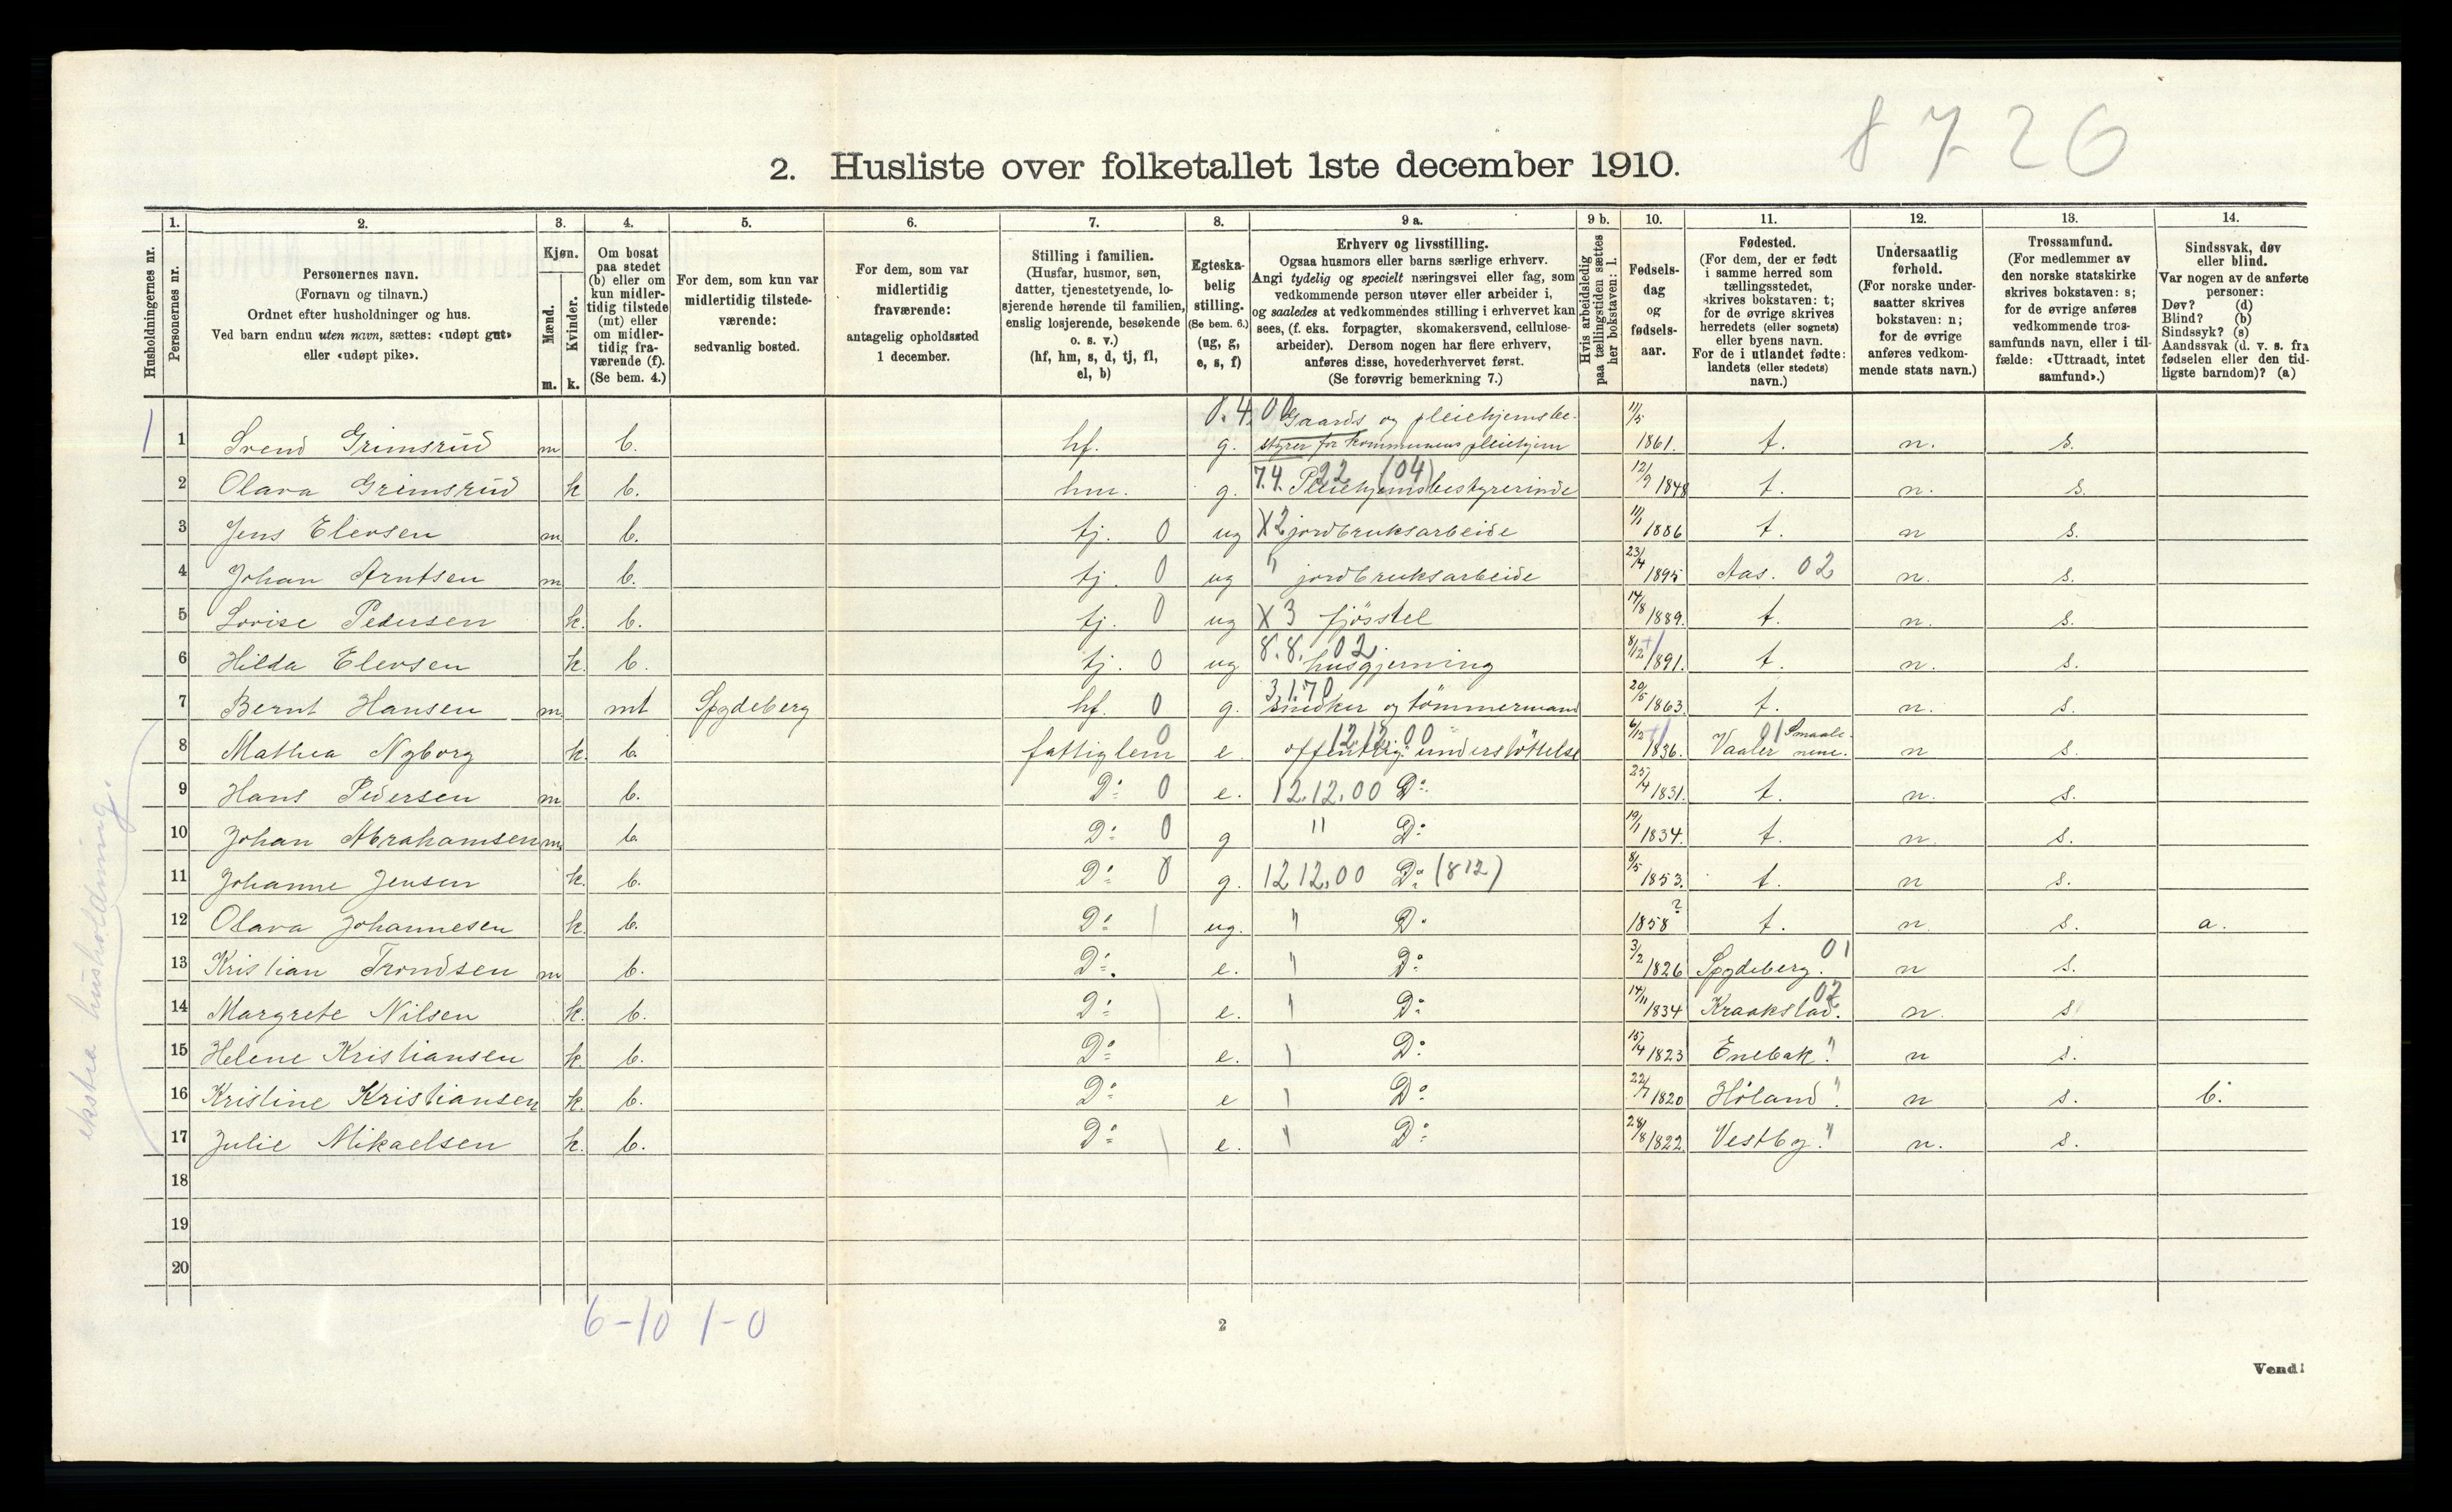 8 7 2 6
2. Husliste over folketallet 1ste december 1910.
Husholdningernes nr.
1. Personernes nr.
2. Personernes navn.
(Fornavn og tilnavn.)
Ordnet efter husholdninger og hus.
Ved barn endnu uten navn, sættes: «udøpt gut»
eller «udøpt pike».
3. Kjøn.
Mænd. m.
Kvinder. k.
4. Om bosat
paa stedet
(b) eller om
kun midler-
tidig tilstede
(mt) eller
om midler-
tidig fra-
værende (f).
(Se bem. 4.)
5. For dem, som kun var
midlertidig tilstede-
værende:
sedvanlig bosted.
6. For dem, som var
midlertidig
fraværende:
antagelig opholdssted
1 december.
7. Stilling i familien.
(Husfar, husmor, søn,
datter, tjenestetyende, lo-
sjerende hørende til familien,
enslig losjerende, besøkende
o. s. v.)
(hf, hm, s, d, tj, fl,
el, b)
8. Egteska-
belig
stilling.
(Se bem. 6.)
(ug, g,
e, s, f)
9 a. Erhverv og livsstilling.
Ogsaa husmors eller barns særlige erhverv.
Angi tydelig og specielt næringsvei eller fag, som
vedkommende person utøver eller arbeider i,
og saaledes at vedkommendes stilling i erhvervet kan
sees, (f. eks. forpagter, skomakersvend, cellulose-
arbeider). Dersom nogen har flere erhverv,
anføres disse, hovederhvervet først.
(Se forøvrig bemerkning 7.)
9 b. Hvis arbeidsledig
paa tællingstiden sættes
her bokstaven: l.
10. Fødsels-
dag
og
fødsels-
aar.
11. Fødested.
(For dem, der er født
i samme herred som
tællingsstedet,
skrives bokstaven: t;
for de øvrige skrives
herredets (eller sognets)
eller byens navn.
For de i utlandet fødte:
landets (eller stedets)
navn.)
12. Undersaatlig
forhold.
(For norske under-
saatter skrives
bokstaven: n;
for de øvrige
anføres vedkom-
mende stats navn.)
13. Trossamfund.
(For medlemmer av
den norske statskirke
skrives bokstaven: s;
for de øvrige anføres
vedkommende tros-
samfunds navn, eller i til-
fælde: «Uttraadt, intet
samfund».)
14. Sindssvak, døv
eller blind.
Var nogen av de anførte
personer:
Døv? (d)
Blind? (b)
Sindssyk? (s)
Aandssvak (d. v. s. fra
fødselen eller den tid-
ligste barndom)? (a)
8.4.00 Gaards og pleiehjemsbe-
1 1 Svend Grimsrud m b. hf. g. styrer for kommunens pleiehjem 11/5 1861. t. n. s.
7.4. 22 (04)
2 Olava Grimsrud k b. hm. g. Pleiehjemsbestyrerinde 12/9 1848 t. n. s.
3 Jens Elevsen m b. tj. 0 ug X2 jordbruksarbeide 11/1 1886 t. n s.
4 Johan Arntsen m b. tj. 0 ug " jordbruksarbeide 23/4 1895 Aas. 02 n. s.
5 Lovise Pedersen k. b. tj. 0 ug X3 fjösstel 14/8 1889. t. n. s.
8.8. 02
6 Hilda Elevsen k. b. tj. 0 ug husgjerning 8/12 1891. t. n. s.
3170
7 Bernt Hansen m mt Spydeberg hf. 0 g. Snedker og tömmermand 20/5 1863. t. n. s.
12.12.00
8 Mathea Nyborg k. b. fattiglem 0 e. offentlig understöttelse 6/12 1836. Vaaler Smaalenene. 01 n s.
9 Hans Pedersen m b. Do 0 e. 12.12.00 Do 25/4 1831. t. n. s.
10 Johan Abrahamsen m. b. Do 0 g " Do 19/1 1834. t. n. s.
11 Johanne Jensen k. b. Do 0 g. 12 12.00 Do (812) 8/5 1853. t. n s.
12 Olava Johannesen k. b. Do ug. " Do 1858 ? t. n s. a.
13 Kristian Trondsen m b. Do e. " Do 3/2 1826 Spydeberg. 01 n s.
14 Margrete Nilsen k. b. Do e. " Do 14/11 1834 Kraakstad. 02 n. s
15 Helene Kristiansen k. b. Do e. " Do 15/4 1823 Enebak. " n s.
16 Kristine Kristiansen k. b. Do e " Do 22/7 1820 Höland. " n s. b.
17 Julie Mikaelsen k. b. Do e. " Do 28/8 1822. Vestby. " n. s.
18
19
20
ekstra husholdning.
6-10 1-0
2
Vend!